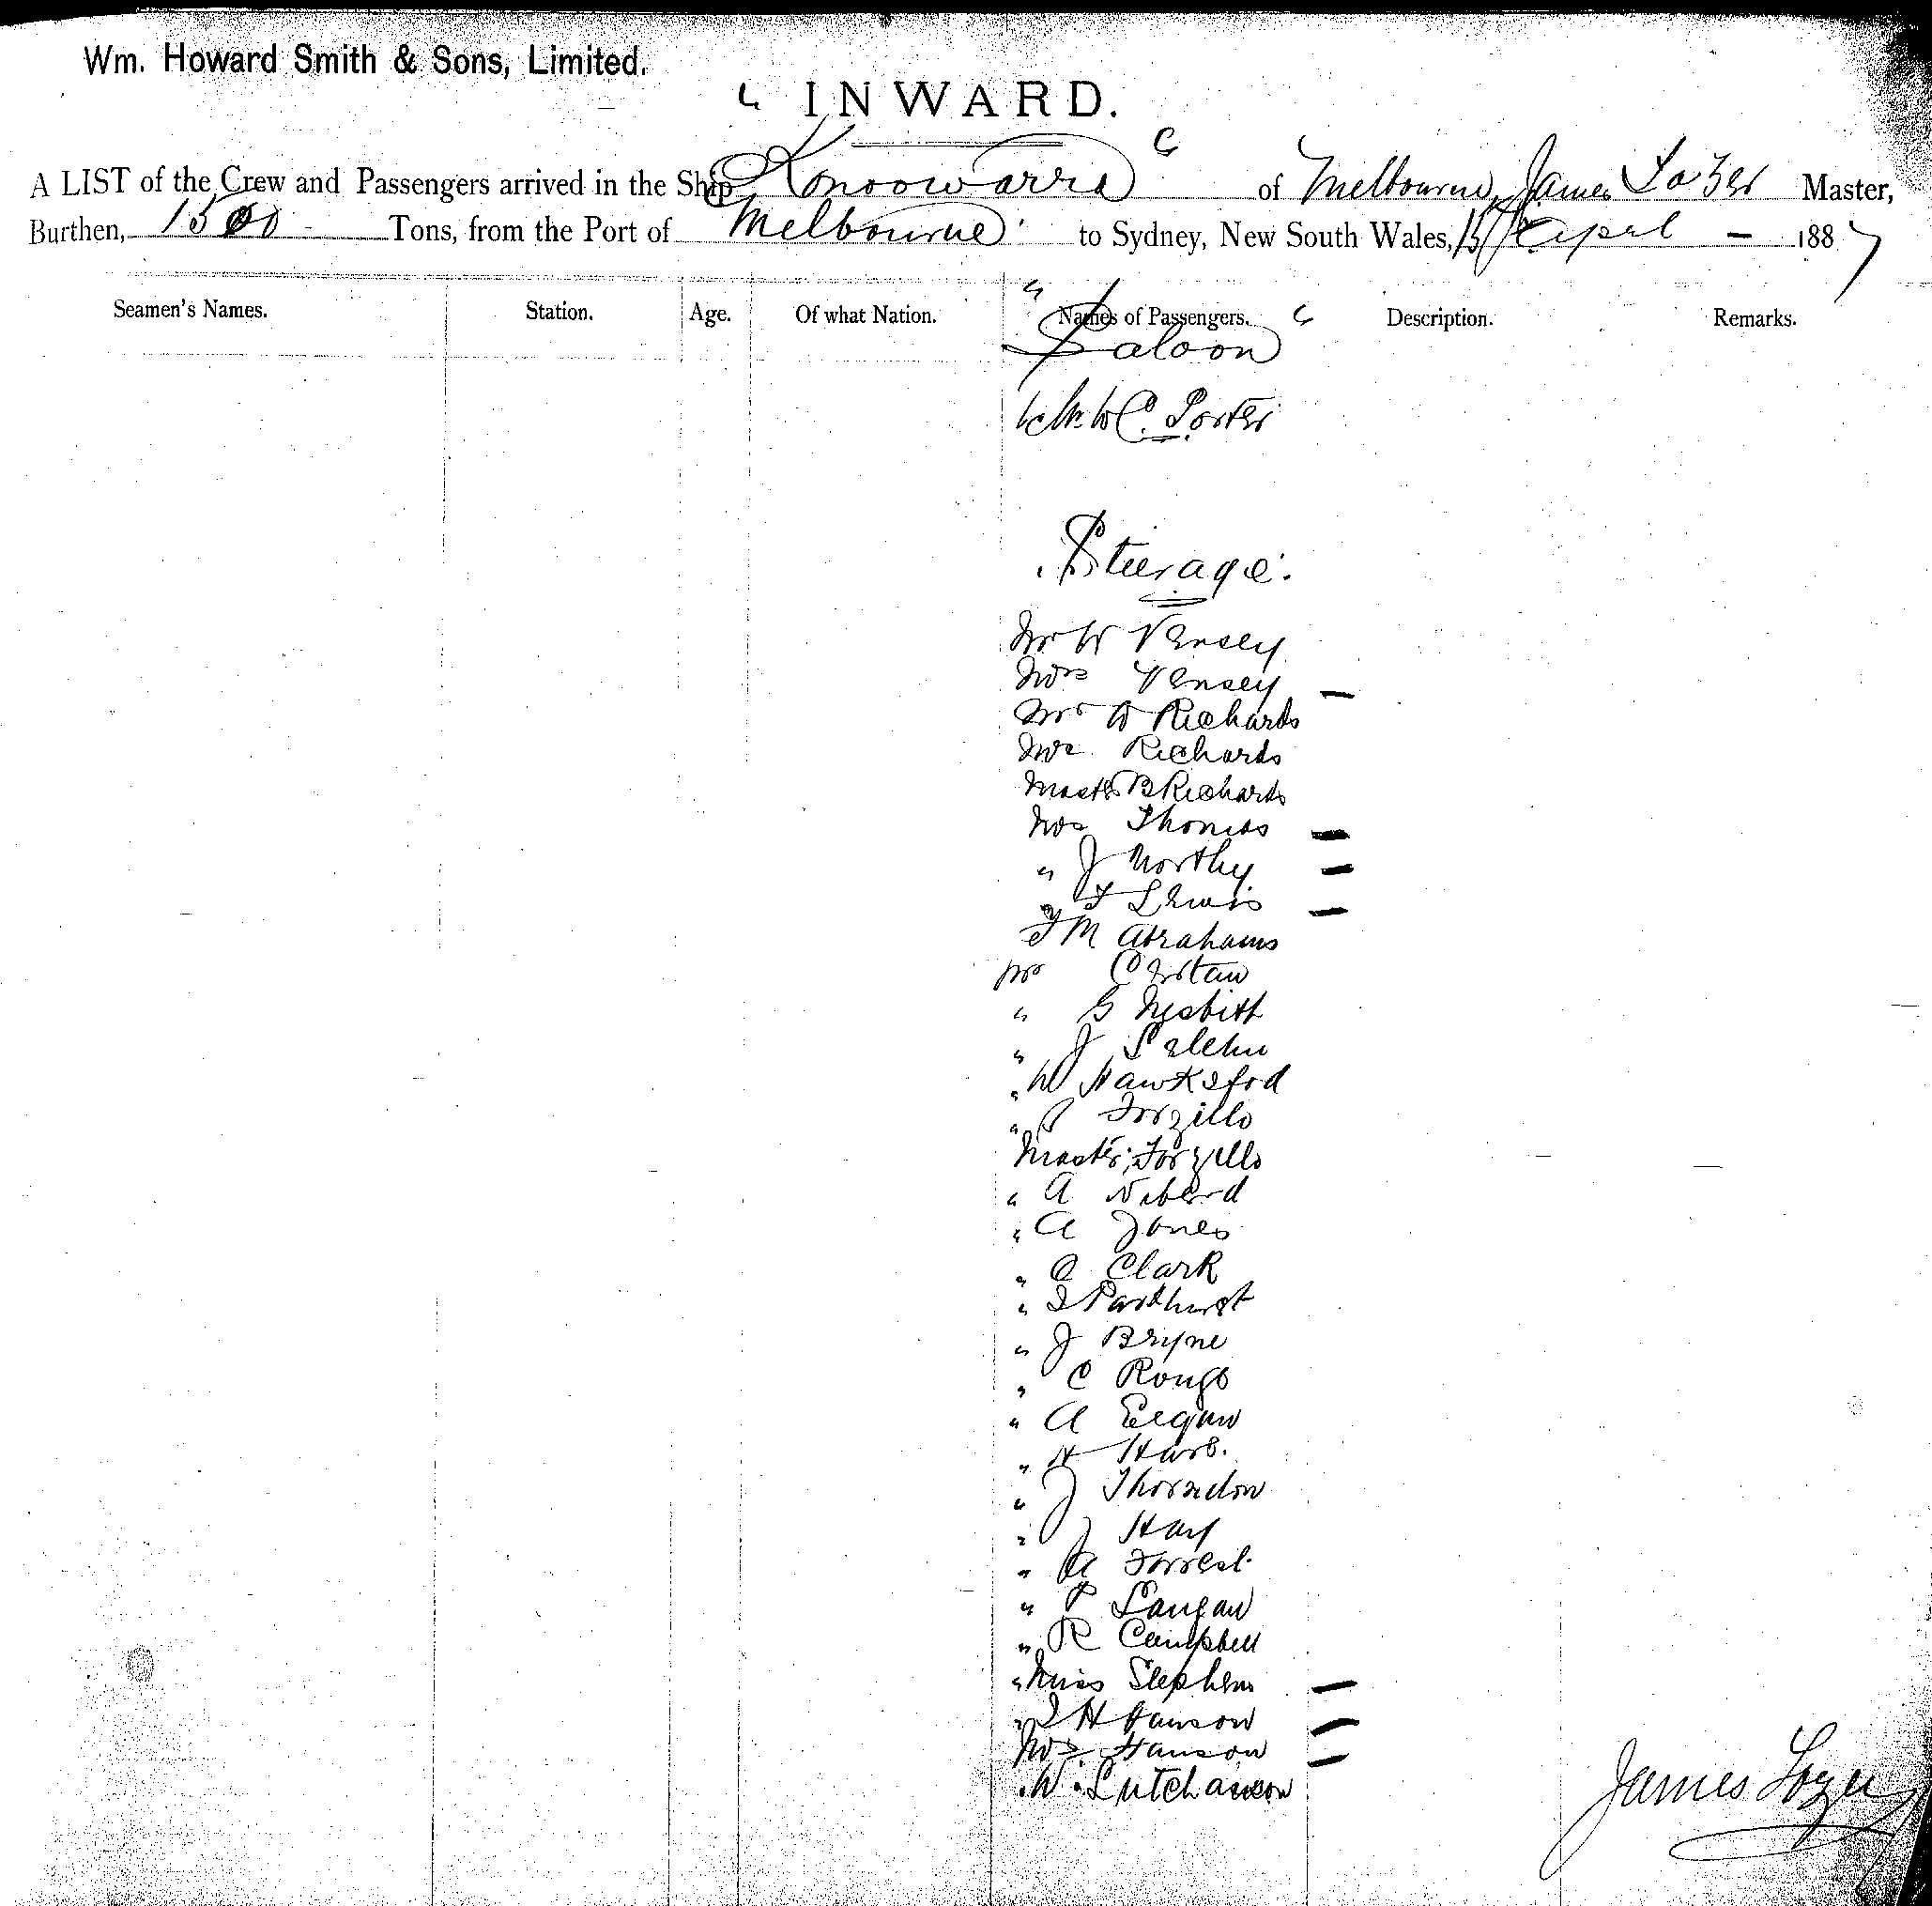 Wm. Howard Smith & Sons, Limited.
INWARD.
A LIST of the Crew and Passengers arrived in the Ship Konoowarra of Melbourne, James Lozer Master,
Burthen, 1500 Tons, from the Port of Melbourne to Sydney, New South Wales, 15 April - 1887
Seamen's Names. Station. Age. Of what Nation. Names of Passengers. Description. Remarks.
Saloon
Mr W C Porter
Steerage.
Mr W Vensey
Mrs Vensey
Mr W Richards
Mrs Richards
Master B Richards
Mrs Thomas
" J Northy
" F Lewis
M Abrahams
Mr
" G Nesbitt
" J
" W Hawksford
" Torzillo
Master Torzillo
" A
" A Jones
" C Clark
" J Parkhurst
" J Bryne
" C
" A
" H
" J Thorndon
" J Hay
" A Forrest
" P Langan
" R Campbell
" Miss Stephens
" J H Hanson
Mrs Hanson
" W
James Lozer